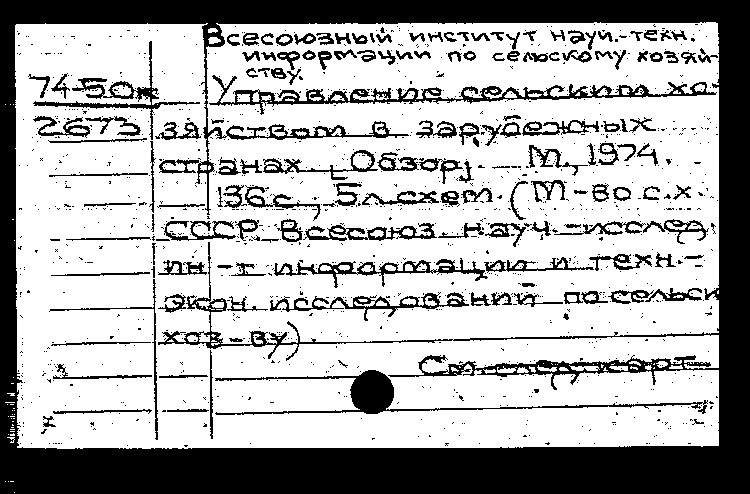 Всесоюзный институт науч.-техн.
информации по сельскому хозяй-
ству.
74-50ж
Управление сельским хо-
2673
зяйством в зарубежных
странах [Обзор]. М., 1974.
136 с., 5 л. схем. (М-во с.х.
СССР. Всесоюз. науч.-исслед.
ин-т информации и техн.-
экон. исследований по сельск
хоз-ву).
См. след. карт